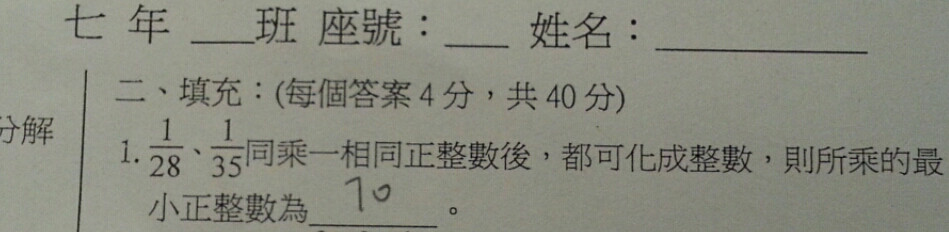 七年 ___班 座號：___ 姓名：_________
二、填充：(每個答案4分，共40分)
分解
1. 1/28、1/35同乘一相同正整數後，都可化成整數，則所乘的最
小正整數為 70 。